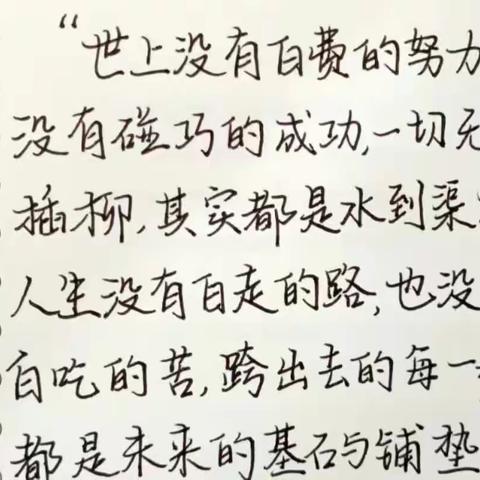 “世上没有白费的努力
没有碰巧的成功,一切无
插柳,其实都是水到渠
人生没有白走的路,也没
白吃的苦,跨出去的每一
都是未来的基石与铺垫